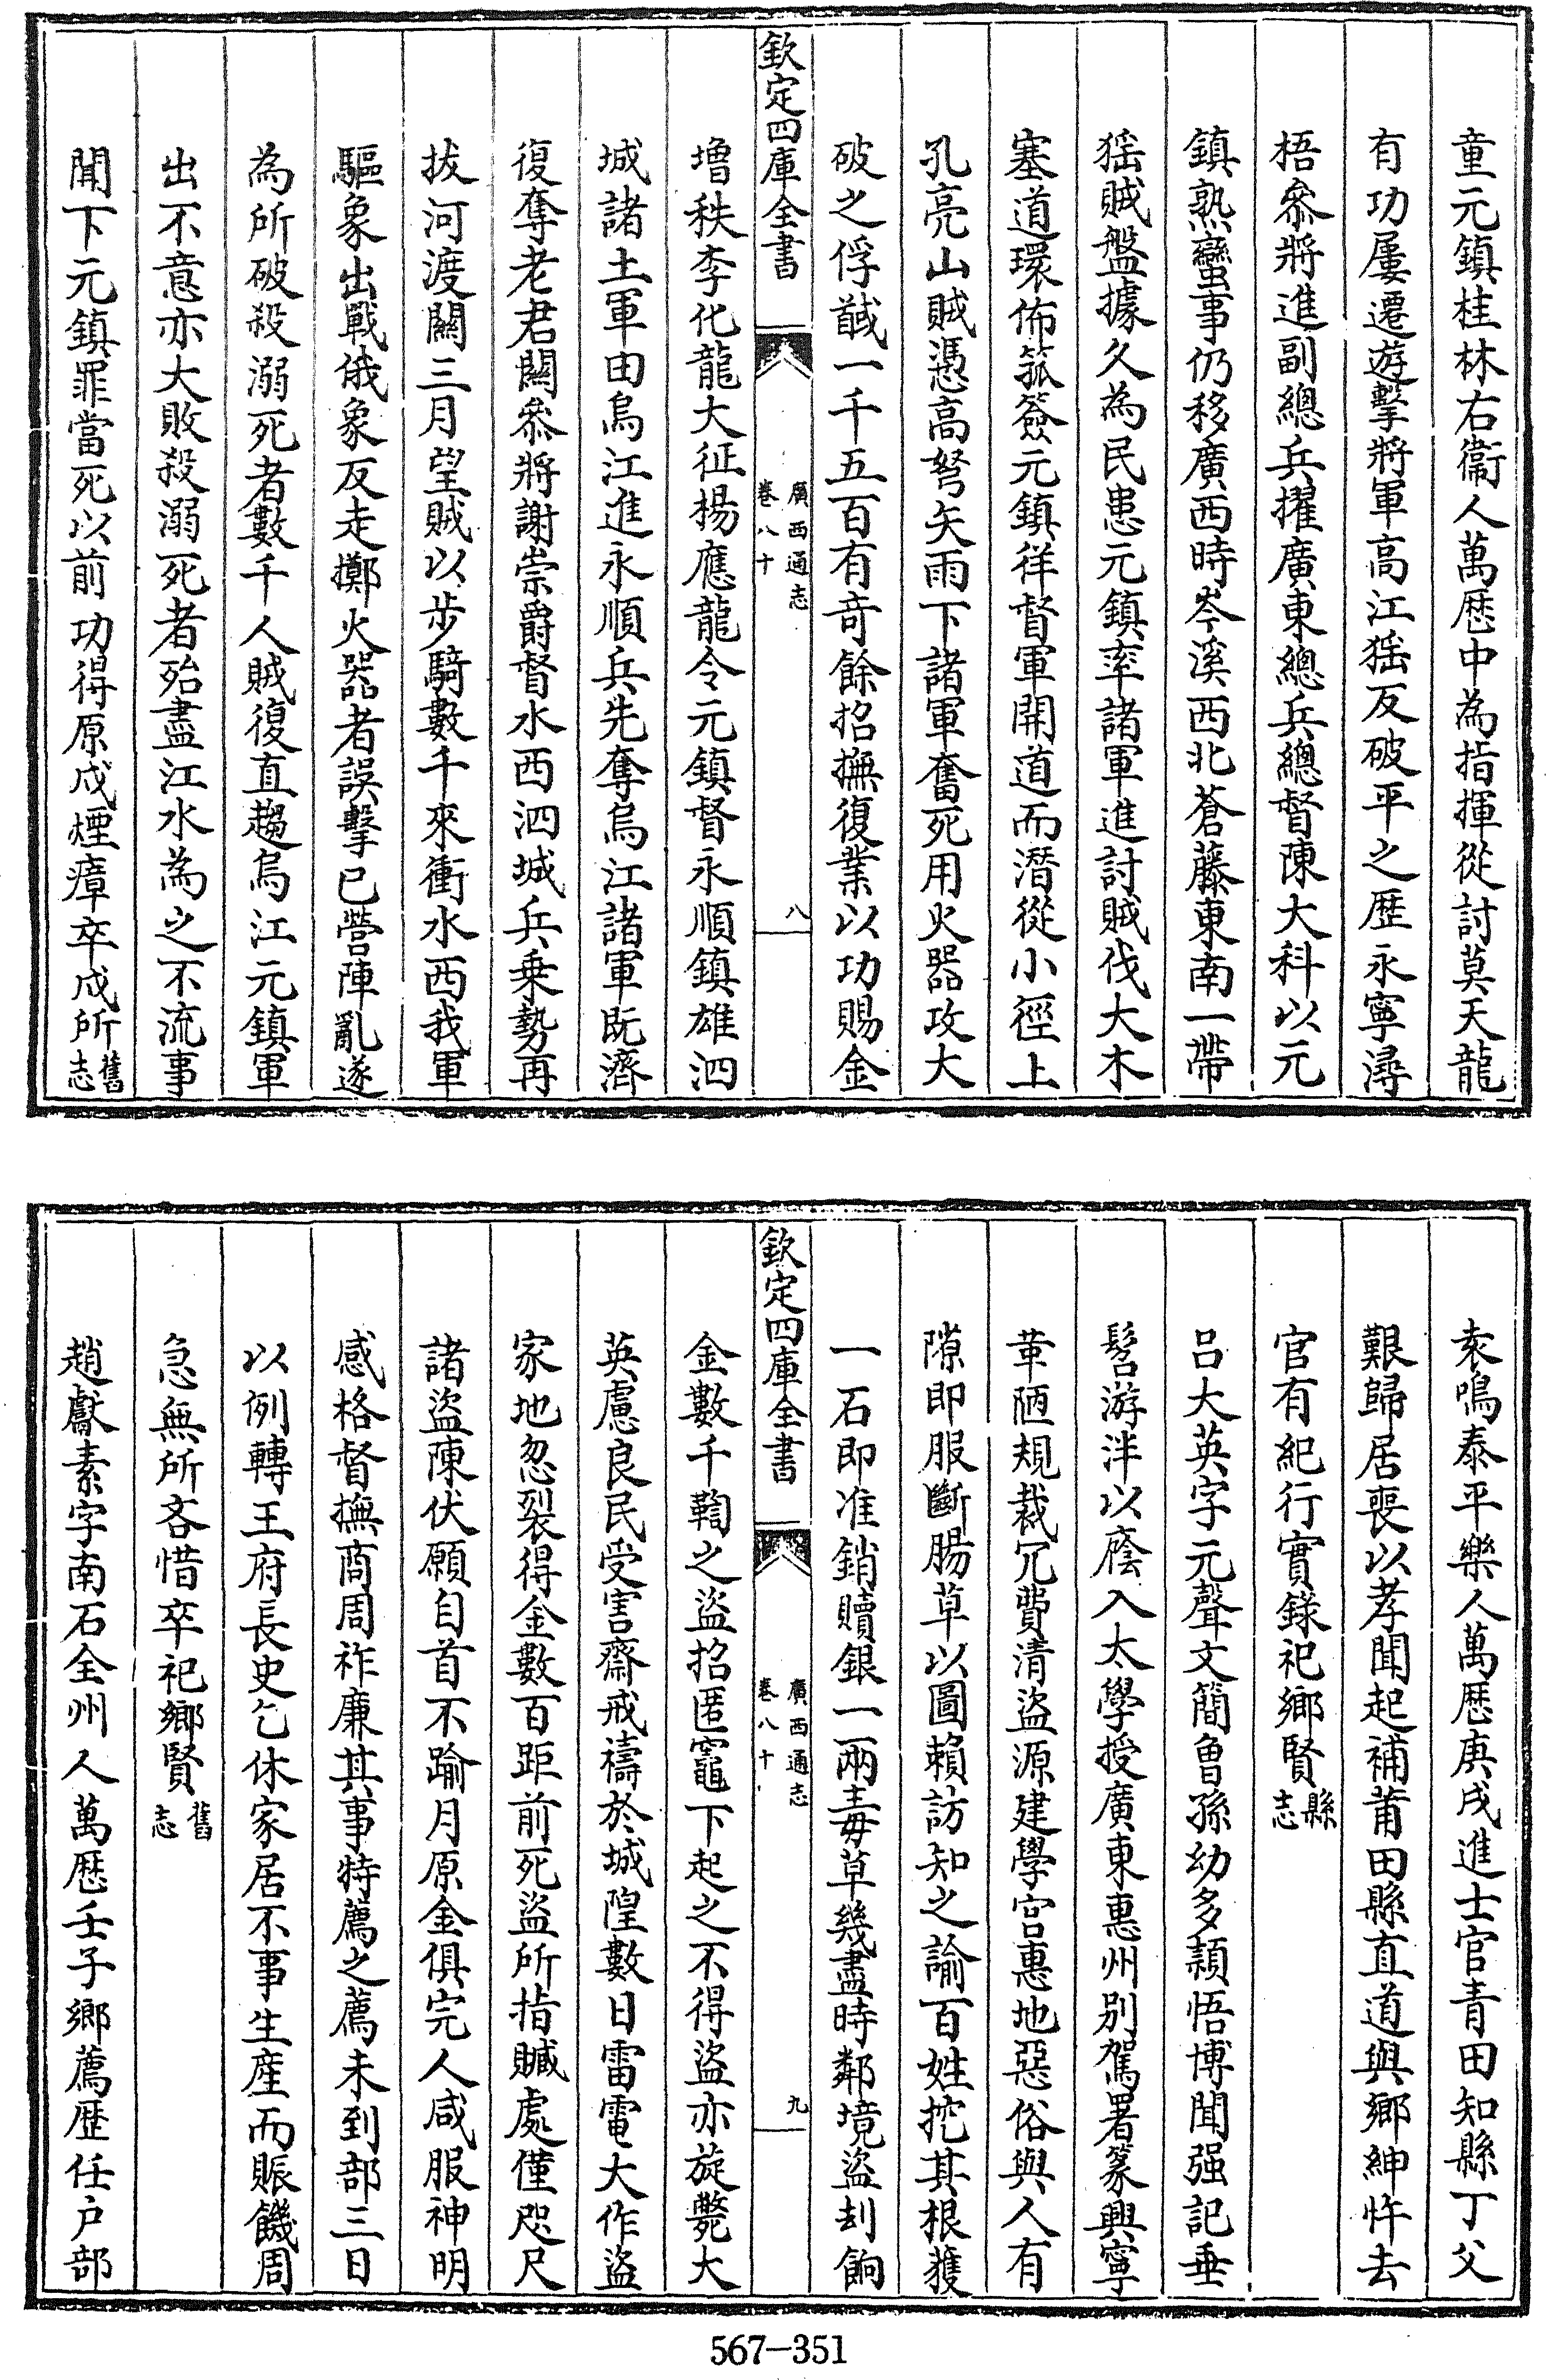 童元鎮桂林右衞人萬歷中為指揮從討莫天龍
有功屢遷遊擊將軍高江猺反破平之歷永寧潯
梧叅將進副總兵擢廣東總兵總督陳大科以元
鎮熟蠻事仍移廣西時岑溪西北蒼藤東南一帶
猺賊盤據久為民患元鎮率諸軍進討賊伐大木
塞道環佈箛簽元鎮徉督軍開道而潛從小徑上
孔亮山賊憑高弩矢雨下諸軍奮死用火器攻大
破之俘馘一千五百有竒餘招撫復業以功賜金
欽定四庫全書
廣西通志
卷八十
八
増秩李化龍大征楊應龍令元鎮督永順鎮雄泗
城諸土軍田烏江進永順兵先奪烏江諸軍既濟
復奪老君關叅將謝崇爵督水西泗城兵乗勢再
拔河渡關三月望賊以步騎數千來衝水西我軍
驅象出戰俄象反走擲火器者誤擊已營陣亂遂
為所破殺溺死者數千人賊復直趨烏江元鎮軍
出不意亦大敗殺溺死者殆盡江水為之不流事
聞下元鎮罪當死以前功得原戍煙瘴卒戍所舊志
袁鳴泰平樂人萬歷庚戌進士官青田知縣丁父
艱歸居喪以孝聞起補莆田縣直道與鄉紳忤去
官有紀行實錄祀鄉賢縣志
呂大英字元聲文簡曾孫幼多穎悟博聞强記垂
髫游泮以廕入太學授廣東惠州别駕署篆興寧
革陋規裁冗費清盜源建學宫惠地惡俗與人有
隙即服斷腸草以圖賴訪知之諭百姓挖其根獲
一石即准銷贖銀一兩毒草幾盡時鄰境盜刦餉
欽定四庫全書
廣西通志
卷八十
九
金數千鞫之盜招匿竈下起之不得盜亦旋斃大
英慮良民受害齋戒禱於城隍數日雷電大作盜
家地忽裂得金數百距前死盜所指贓處僅咫尺
諸盜陳伏願自首不踰月原金俱完人咸服神明
感格督撫商周祚廉其事特薦之薦未到部三日
以例轉王府長史乞休家居不事生産而賑饑周
急無所吝惜卒祀鄉賢舊志
趙獻素字南石全州人萬歷壬子鄉薦歷任户部
567—351